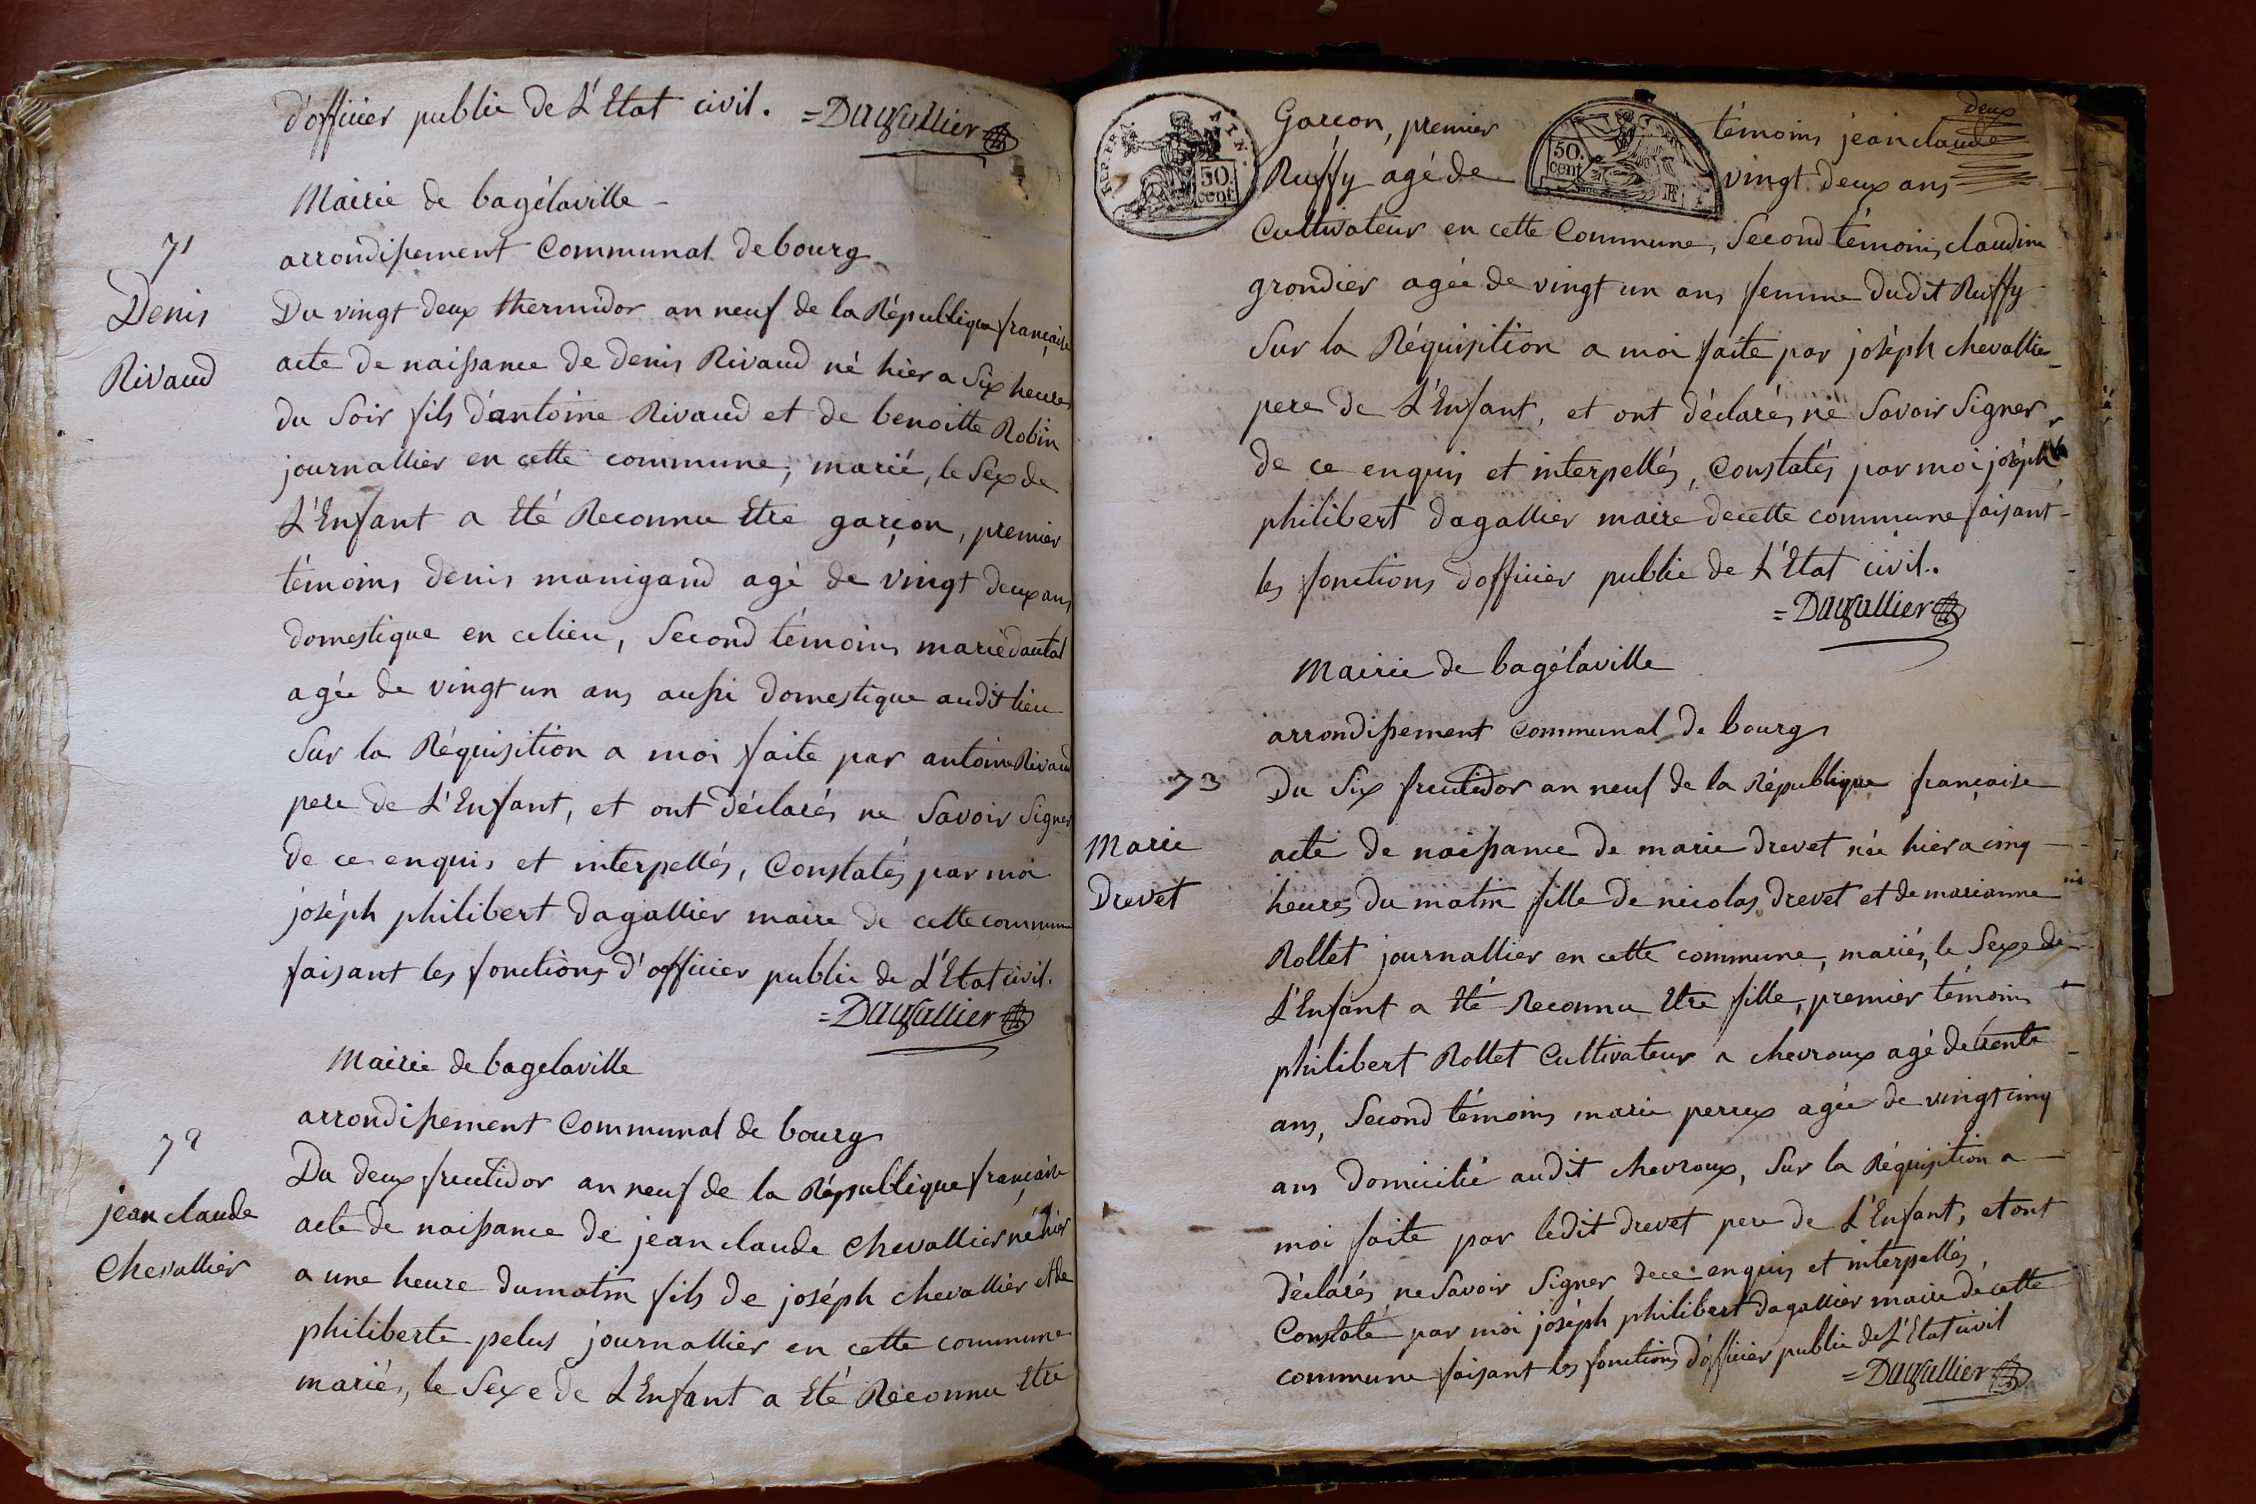 d'officier public de L'Etat civil. =Dagallier
Mairie de bagélaville -
arrondissement Communal de bourg
71
Denis
Rivaud
Du vingt deux thermidor an neuf de la République française
acte de naissance de denis Rivaud né hier a Six heures
du Soir fils d'antoine Rivaud et de benoitte Robin
journallier en cette commune, marié, le Sexe de
L'Enfant a Eté Reconnu Etre garçon, premier
témoins denis manigand agé de vingt deux ans
domestique en ce lieu, Second témoins marie dantal
agée de vingt un ans aussi domestique audit lieu
Sur la Réquisition a moi faite par antoine Rivaud
pere de L'Enfant, et ont déclarés ne Savoir Signer
de ce enquis et interpellés, Constatés par moi
joséph philibert dagallier maire de cette commune
faisant les fonctions d'officier public de L'Etat civil.
=Dagallier
Mairie de bagelaville
arrondissement Communal de bourg
72
jean claude
Chevallier
Du deux fructidor an neuf de la République française
acte de naissance de jean claude Chevallier né hier
a une heure du matin fils de joséph chevallier et de
philiberte pelus journallier en cette commune
mariés, le Sexe de L'Enfant a Eté Reconnu Etre
deux
Garcon, premier témoins jean claude
50. cent. 50. cent. RF
Ruffy agé de vingt deux ans
Cultivateur en cette Commune, Second témoins claudine
grondier agée de vingt un ans femme dudit Ruffy
Sur la Réquisition a moi faite par joséph chevallier
pere de L'Enfant, et ont déclarés ne Savoir Signer
de ce enquis et interpellés, Constatés par moi joséph
philibert dagallier maire de cette commune faisant
les fonctions d'officier public de L'Etat civil.
=Dagallier
Mairie de bagélaville
arrondissement Communal de bourg
73
Marie
Drevet
Du Six fructidor an neuf de la République française
acte de naissance de marie drevet née hier a cinq
heures du matin fille de nicolas drevet et de marianne
Rollet journallier en cette commune, mariés, le Sexe de
L'Enfant a Eté Reconnu Etre fille, premier témoins
philibert Rollet Cultivateur a chevroux agé de trente
ans, Second témoins marie perrux agée de vingt cinq
ans domicilié audit chevroux, Sur la Réquisition a
moi faite par ledit drevet pere de L'Enfant, et ont
déclarés ne Savoir Signer de ce enquis et interpellés
Constaté par moi joséph philibert dagallier maire de cette
commune faisant les fonctions d'officier public de L'Etat civil
=Dagallier